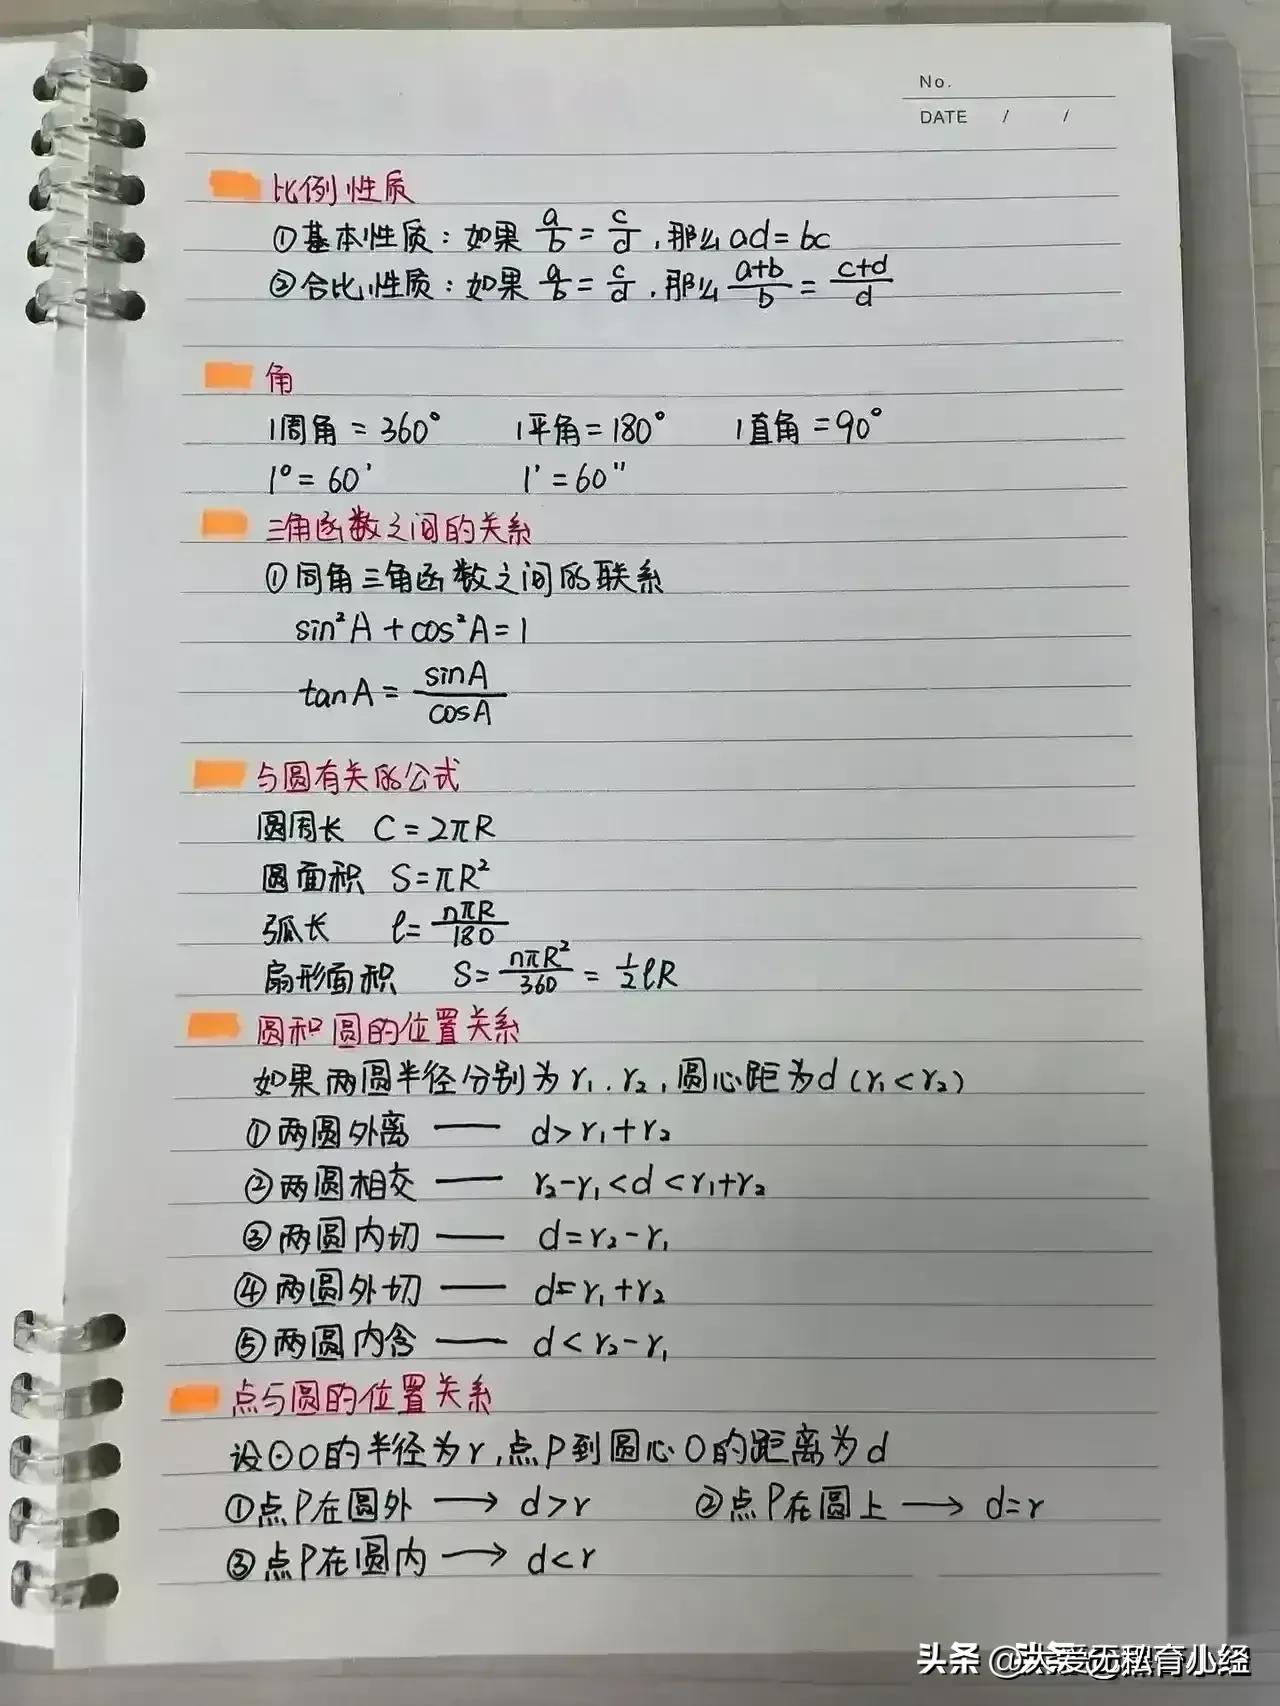 No.
DATE / /
比例性质
①基本性质：如果 a/b = c/d，那么 ad = bc
②合比性质：如果 a/b = c/d，那么 (a+b)/b = (c+d)/d
角
1周角 = 360° 1平角 = 180° 1直角 = 90°
1° = 60′ 1′ = 60″
三角函数之间的关系
①同角三角函数之间的联系
sin²A + cos²A = 1
tanA = sinA/cosA
与圆有关的公式
圆周长 C = 2πR
圆面积 S = πR²
弧长 ℓ = nπR/180
扇形面积 S = nπR²/360 = 1/2 ℓR
圆和圆的位置关系
如果两圆半径分别为 r₁，r₂，圆心距为d（r₁ < r₂）
①两圆外离 —— d > r₁ + r₂
②两圆相交 —— r₂ - r₁ < d < r₁ + r₂
③两圆内切 —— d = r₂ - r₁
④两圆外切 —— d = r₁ + r₂
⑤两圆内含 —— d < r₂ - r₁
点与圆的位置关系
设⊙O的半径为r，点P到圆心O的距离为d
①点P在圆外 → d > r ②点P在圆上 → d = r
③点P在圆内 → d < r
头条